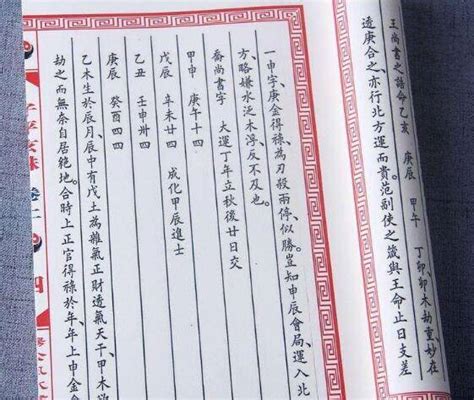 王尚書之諸命乙亥 庚辰 甲午 丁卯卯木劫重、妙在
透庚合之、亦行北方運而貴。范副使之歲與王命止日支差
一申字、庚金得祿、為刃殺兩停、似勝。豈知申辰會局、運入北
方、略嫌水泛木浮、反不及也。
喬尚書字 大運丁年立秋後廿日交
甲申 庚午十四
戊辰 辛未廿四 成化甲辰進士
乙丑 壬申卅四
庚辰 癸酉四四
乙木生於辰月、辰申有戊土為雜氣正財透氣天干、甲木欲
劫之而無奈自居絕地。合時上正官得祿於年、年上申金會
卷二
四